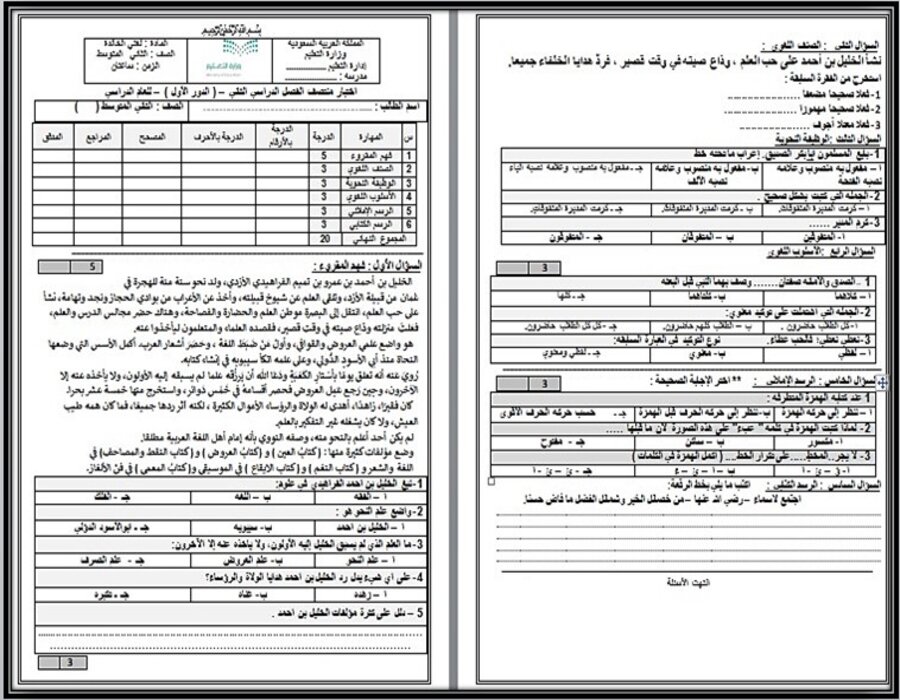 بسم الله الرحمن الرحيم
المملكة العربية السعودية
وزارة التعليم
إدارة التعليم
مدرسة :
وزارة التعليم
المادة : لغتي الخالدة
الصف : الثاني المتوسط
الزمن : ساعتان
اختبار منتصف الفصل الدراسي الثاني – ( الدور الأول ) – للعام الدراسي
اسم الطالب : الصف : الثاني المتوسط ( )
س المهارة الدرجة الدرجة بالأرقام الدرجة بالأحرف المصحح المراجع المدقق
1 فهم المقروء 5
2 الصنف اللغوي 3
3 الوظيفة النحوية 3
4 الأسلوب اللغوي 3
5 الرسم الإملائي 3
6 الرسم الكتابي 3
المجموع النهائي 20
السؤال الأول : فهم المقروء :
5
الخليل بن أحمد بن عمرو بن تميم الفراهيدي الأزدي، ولد نحو سنة مئة للهجرة في
عُمان من قبيلة الأزد، وتلقى العلم عن شيوخ قبيلته، وأخذ عن الأعراب من بوادي الحجاز ونجد وتهامة، نشأ
على حب العلم، انتقل إلى البصرة موطن العلم والحضارة والفصاحة، وهناك حضر مجالس الدرس والعلم،
فعلت منزلته وذاع صيته في وقت قصير، فقصده العلماء والمتعلمون ليأخذوا عنه.
هو واضع علمي العروض والقوافي، وأول من ضبط اللغة ، وحصر أشعار العرب، أكمل الأسس التي وضعها
النحاة منذ أبي الأسود الدؤلي، وعلى علمه اتكأ سيبويه في إنشاء كتابه.
رُوي عنه أنه تعلق يومًا بأستار الكعبة ودعا الله أن يرزقه علما لم يسبقه إليه الأولون، ولا يأخذه عنه إلا
الآخرون، وحين رجع عمل العروض فحصر أقسامه في خمس دوائر، واستخرج منها خمسة عشر بحرا.
كان فقيرًا، زاهدًا، أهدى له الولاة والرؤساء الأموال الكثيرة ، لكنه آثر ردها جميعًا، فما كان همه طيب
العيش، ولا كان يشغله غير التفكير بالعلم.
لم يكن أحد أعلم بالنحو منه، وصفه النووي بأنه إمام أهل اللغة العربية مطلقا.
وضع مؤلفات كثيرة منها : ( كتابُ العين ) و (كتابُ العروض ) و (كتاب النقط والمصاحف) في
اللغة والشعر و ( كتاب النغم ) و( كتاب الإيقاع ) في الموسيقى و( كتاب المعمى ) في فنّ الألغاز.
1- نبغ الخليل بن أحمد الفراهيدي في علوم:
أ – الفقه ب – اللغة جـ - الفلك
2- واضع علم النحو هو :
أ – الخليل بن أحمد ب- سيبويه جـ - أبو الأسود الدؤلي
3- ما العلم الذي لم يسبق الخليل إليه الأولون، ولا يأخذه عنه إلا الآخرون:
أ – علم النحو ب- علم العروض جـ - علم الصرف
4- على أي شيء يدل رد الخليل بن أحمد هدايا الولاة والرؤساء؟
أ – زهده ب- غناه جـ - تكبره
5 – دلل على كثرة مؤلفات الخليل بن أحمد .
3
السؤال الثاني : الصنف اللغوي :
نشأ الخليل بن أحمد على حب العلم ، وذاع صيته في وقت قصير ، فردّ هدايا الخلفاء جميعها.
استخرج من الفقرة السابقة :
1- فعلا صحيحا مضعفا
2- فعلا صحيحا مهموزا
3- فعلا معلا أجوف
السؤال الثالث :الوظيفة النحوية
إعراب ما تحته خط
أ – مفعول به منصوب وعلامة نصبه الفتحة ب- مفعول به منصوب وعلامة نصبه الألف جـ - مفعول به منصوب وعلامة نصبه الياء
2- الجملة التي كتبت بشكل صحيح .
أ – كرمت المديرة المتفوقات. ب - كرمت المديرة المتفوقات. جـ - كرمت المديرة المتفوقات.
3- كرم المدير ......
أ- المتفوقين ب – المتفوقان جـ - المتفوقون
السؤال الرابع :الأسلوب اللغوي
3
1 ..الصدق والأمانة صفتان........ وصف بهما النبي قبل البعثة
أ – كلاهما ب- كلتاهما جـ - كلها
2- الجملة التي اشتملت على توكيد معنوي:
أ – كل الطلاب حاضرون. ب – الطلاب كلهم حاضرون. جـ - كل كل الطلاب حاضرون.
نوع التوكيد في العبارة السابقة:
أ – لفظي ب- معنوي جـ - لفظي ومعنوي
السؤال الخامس : الرسم الإملائي : **اختر الإجابة الصحيحة :
3
1 عند كتابة الهمزة المتطرفة :
أ – ننظر إلى حركة الهمزة ب- ننظر إلى حركة الحرف قبل الهمزة جـ - حسب حركة الحرف الأقوى
2- لماذا كتبت الهمزة في كلمة "عبء" على هذه الصورة لأن ما قبلها .....
أ – مكسور ب – ساكن جـ - مفتوح
( أكمل الهمزة في الكلمات )
السؤال السادس : الرسم الكتابي : اكتب ما يلي بخط الرقعة:
اجتمع لأسماء – رضي الله عنها – من خصائل الخير وشمائل الفضل ما فاض حسنا.
انتهت الأسئلة